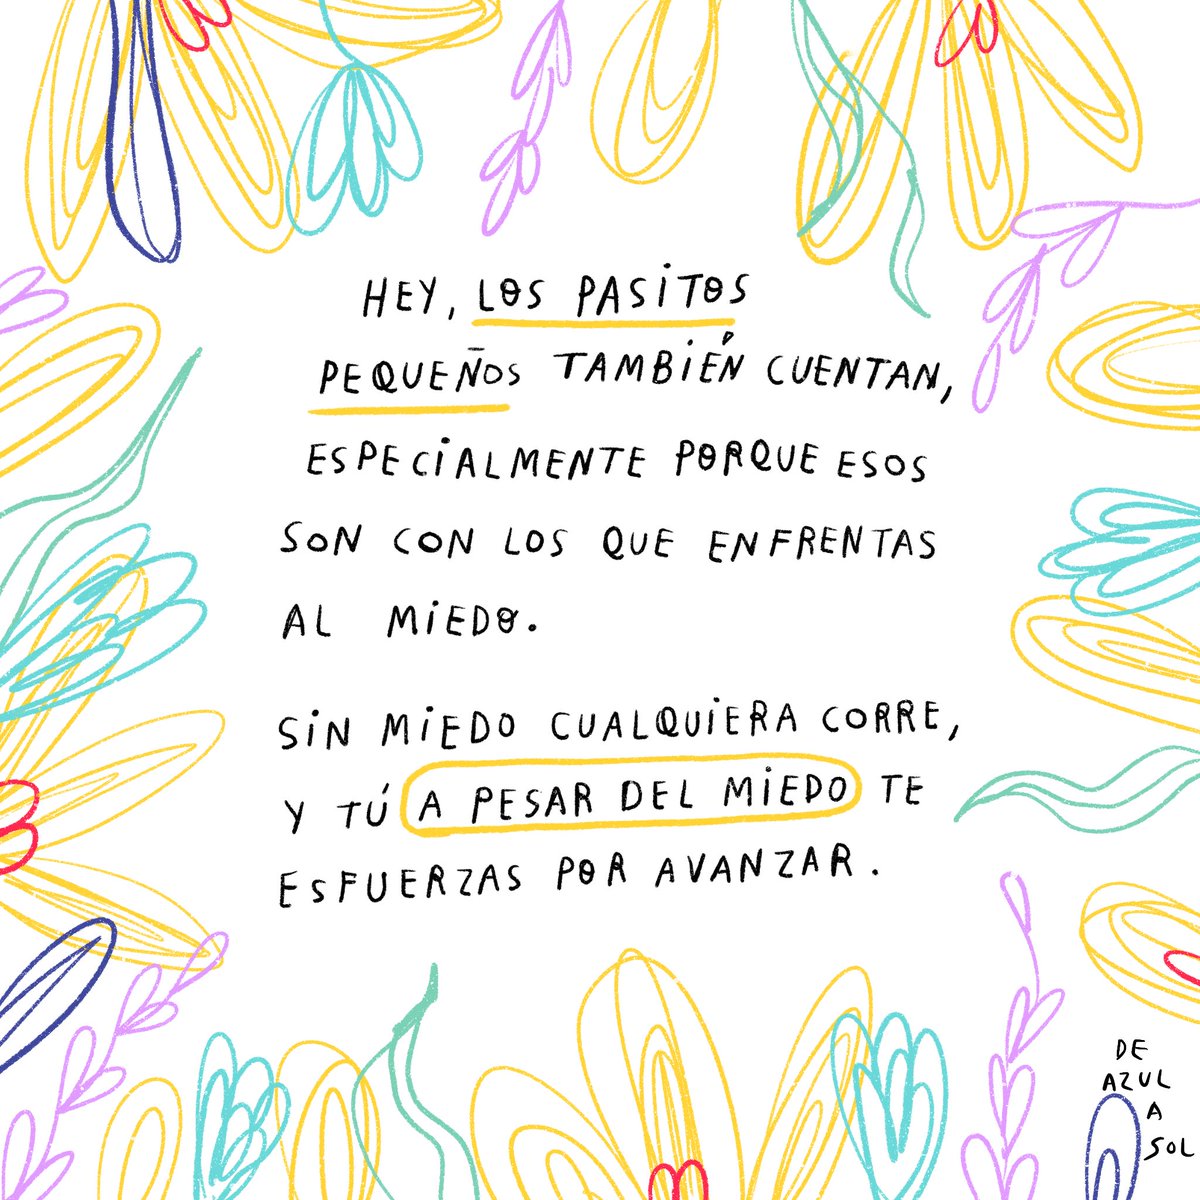 HEY, LOS PASITOS
PEQUEÑOS TAMBIÉN CUENTAN,
ESPECIALMENTE PORQUE ESOS
SON CON LOS QUE ENFRENTAS
AL MIEDO.
SIN MIEDO CUALQUIERA CORRE,
Y TÚ A PESAR DEL MIEDO TE
ESFUERZAS POR AVANZAR.
DE
AZUL
A
SOL